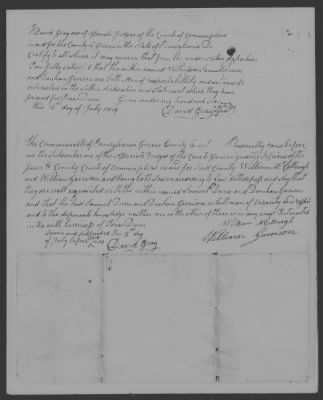 I David Gray one of Associate Judges of the Court of common pleas
in and for the County of Greene in the State of Pennsylvania Do
Certify to all whom it may concern that from the under written Affidavits
I am fully satisfied that the within named Witnesses Samuel Dunn
and Dunham Garrison are both Men of respectability and no wise
interested in the within declaration and Statement which they have
proved for Dunn Given under my hand and Seal
this 5th day of July 1819
David Gray
The Commonwealth of Pennsylvania Greene County to wit Personally came before
me the Subscriber one of the Associate Judges of the Court
peace & County Courts of Common pleas in and for Said County William McCollough
and William Garrison and being both Sworn according to Law doth depose and Say that
they are well acquainted with the within named Samuel Dunn and Dunham Garrison
and that the Said Samuel Dunn and Dunham Garrison is both men of Varacity and respect
and to the deponents knowledge neither one or the other of them is in any ways Interested
in the with buissness of Dunn
Sworn and Subscribed this 5 day
of July before me
David Gray
William McCollough
William Garrison